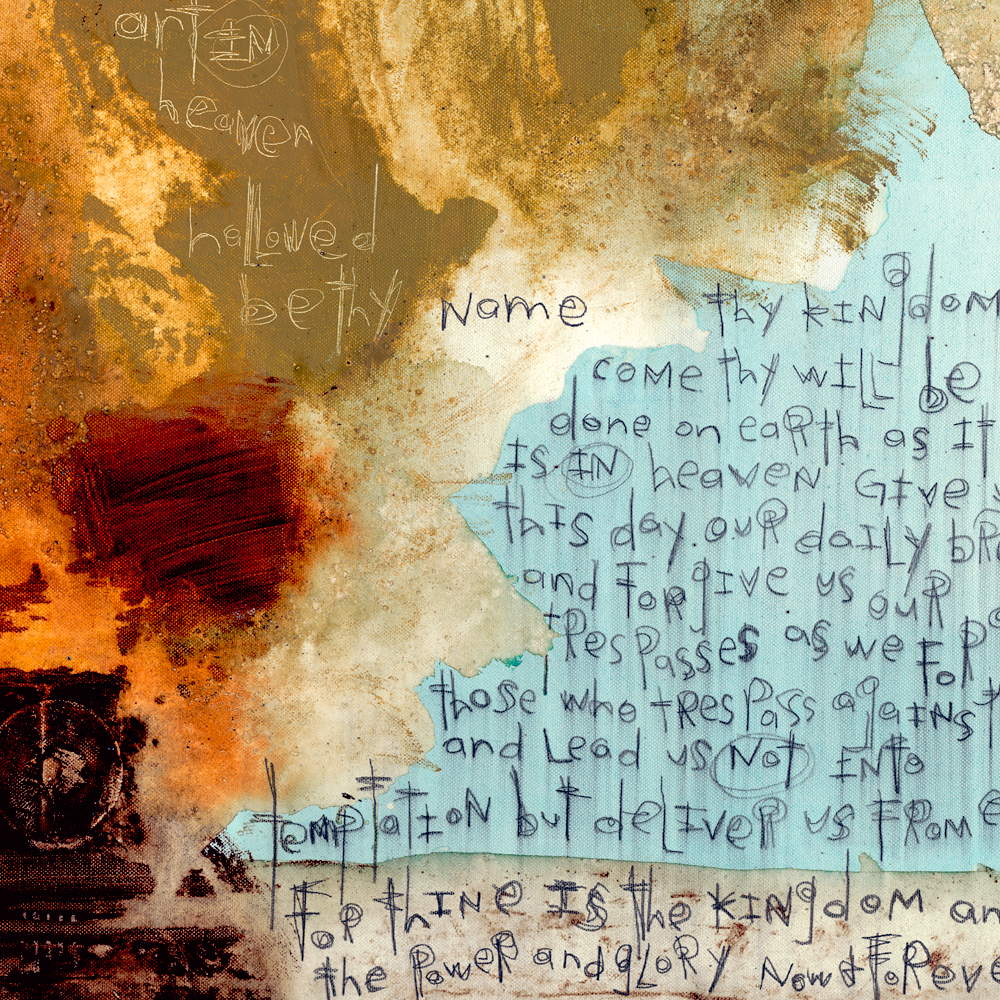 art IN
heaven
hallowed
be thy Name
thy kINgdom
come thy wILL be
done on eaRth as It
Is IN heaven GIve
thIs day ouR daILy bR
and ForgIve us ouR
tResPasses as we FoR
those who tResPass agaINst
and Lead us Not INto
temPtatIoN but deLIveR us FRom e
FoR thINe Is the KINgdom an
the PoweR and gLoRy Now & FoReve